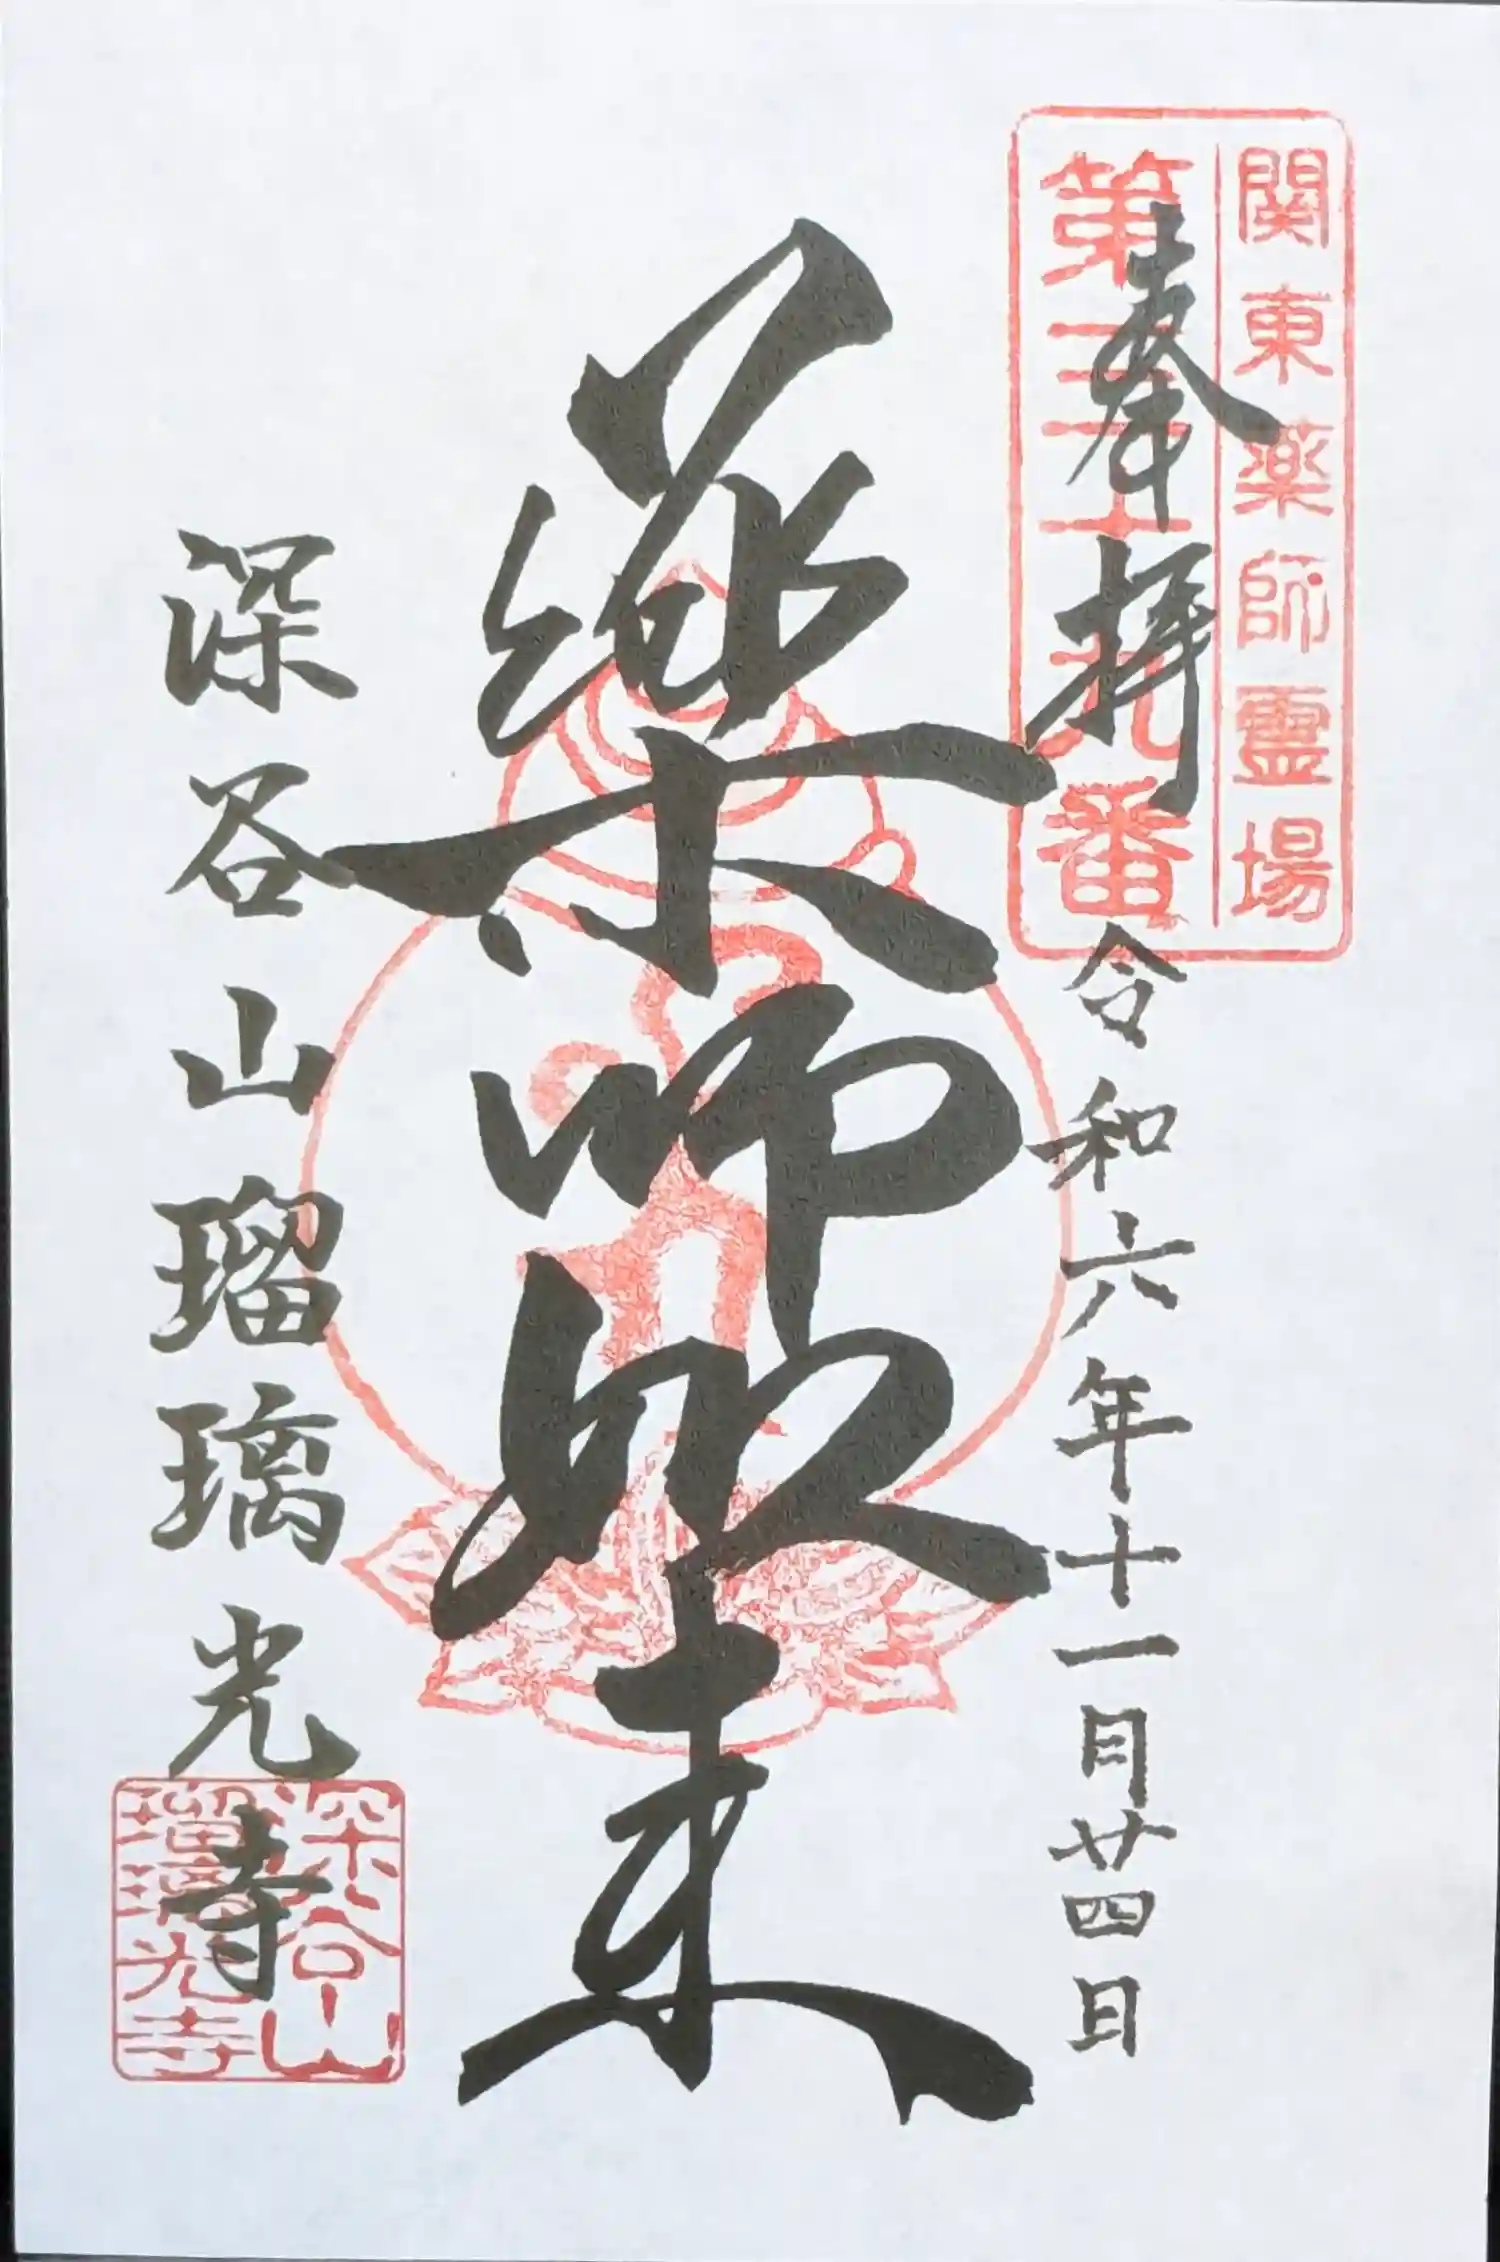 関東薬師霊場
第三十九番
奉拝
令和六年十一月廿四日
藥師如来
深谷山瑠璃光寺
深谷山
瑠璃光寺